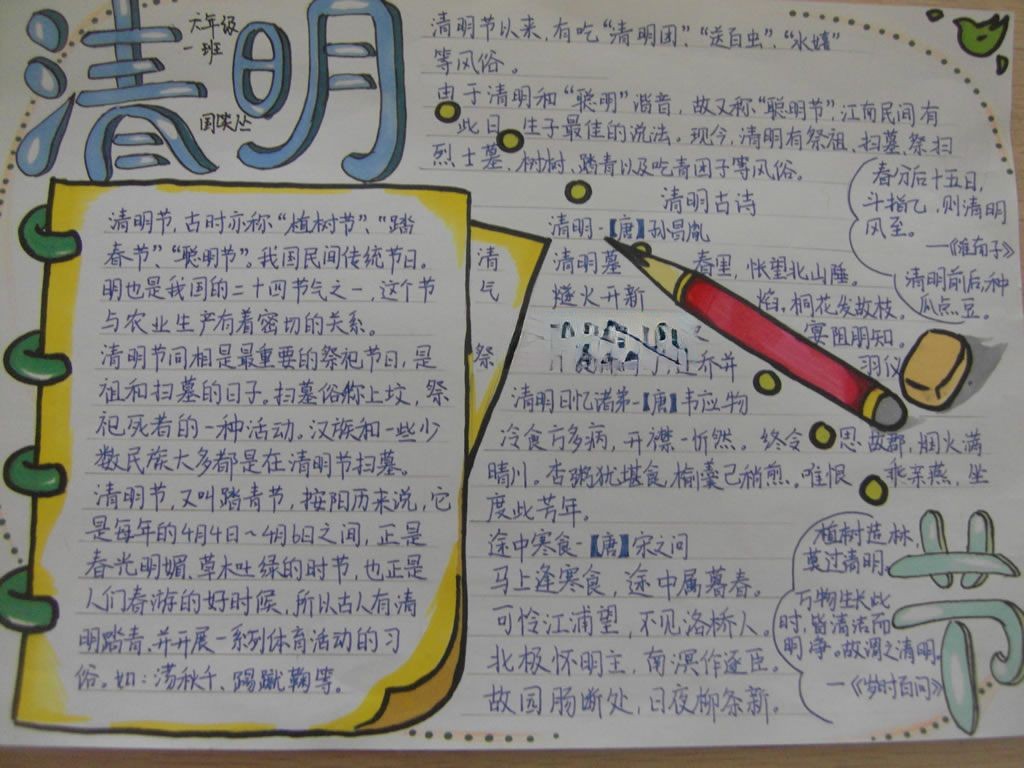 清明
六年级
一班
清明节以来，有吃“清明团”、“送百虫”、“水嬉”
等风俗。
由于清明和“聪明”谐音，故又称“聪明节”，江南民间有
此日 生子最佳的说法。现今，清明有祭祖、扫墓、祭扫
烈士墓、树树、踏青以及吃青团子等风俗。
清明古诗
清明-【唐】孙昌胤
清明墓 春里，怅望北山陲。
燧火开新 焰，桐花发故枝。
宴阻朋知。
乔并 羽仪
清明日忆诸第-【唐】韦应物
冷食方多病，开襟一忻然。终令 思故郡，烟火满
晴川。杏粥犹堪食，榆羹已稍煎。唯恨 乘亲燕，坐
度此芳年。
途中寒食-【唐】宋之问
马上逢寒食，途中属暮春。
可怜江浦望，不见洛桥人。
北极怀明主，南溟作逐臣。
故园肠断处，日夜柳条新。
清明节，古时亦称“植树节”、“踏
春节”、“聪明节”。我国民间传统节日。 清
明也是我国的二十四节气之一，这个节 气
与农业生产有着密切的关系。
清明节同相是最重要的祭祀节日，是 祭
祖和扫墓的日子。扫墓俗称上坟，祭
祀死者的一种活动。汉族和一些少
数民族大多都是在清明节扫墓。
清明节，又叫踏青节，按阳历来说，它
是每年的4月4日～4月6日之间，正是
春光明媚、草木吐绿的时节，也正是
人们春游的好时候，所以古人有清
明踏青、并开展一系列体育活动的习
俗。如：荡秋千、踢蹴鞠等。
春分后十五日，
斗指乙，则清明
风至。
—《淮南子》
清明前后，种
瓜点豆。
植树造林，
莫过清明。
万物生长此
时，皆清洁而
明净。故谓之清明。
—《岁时百问》
节